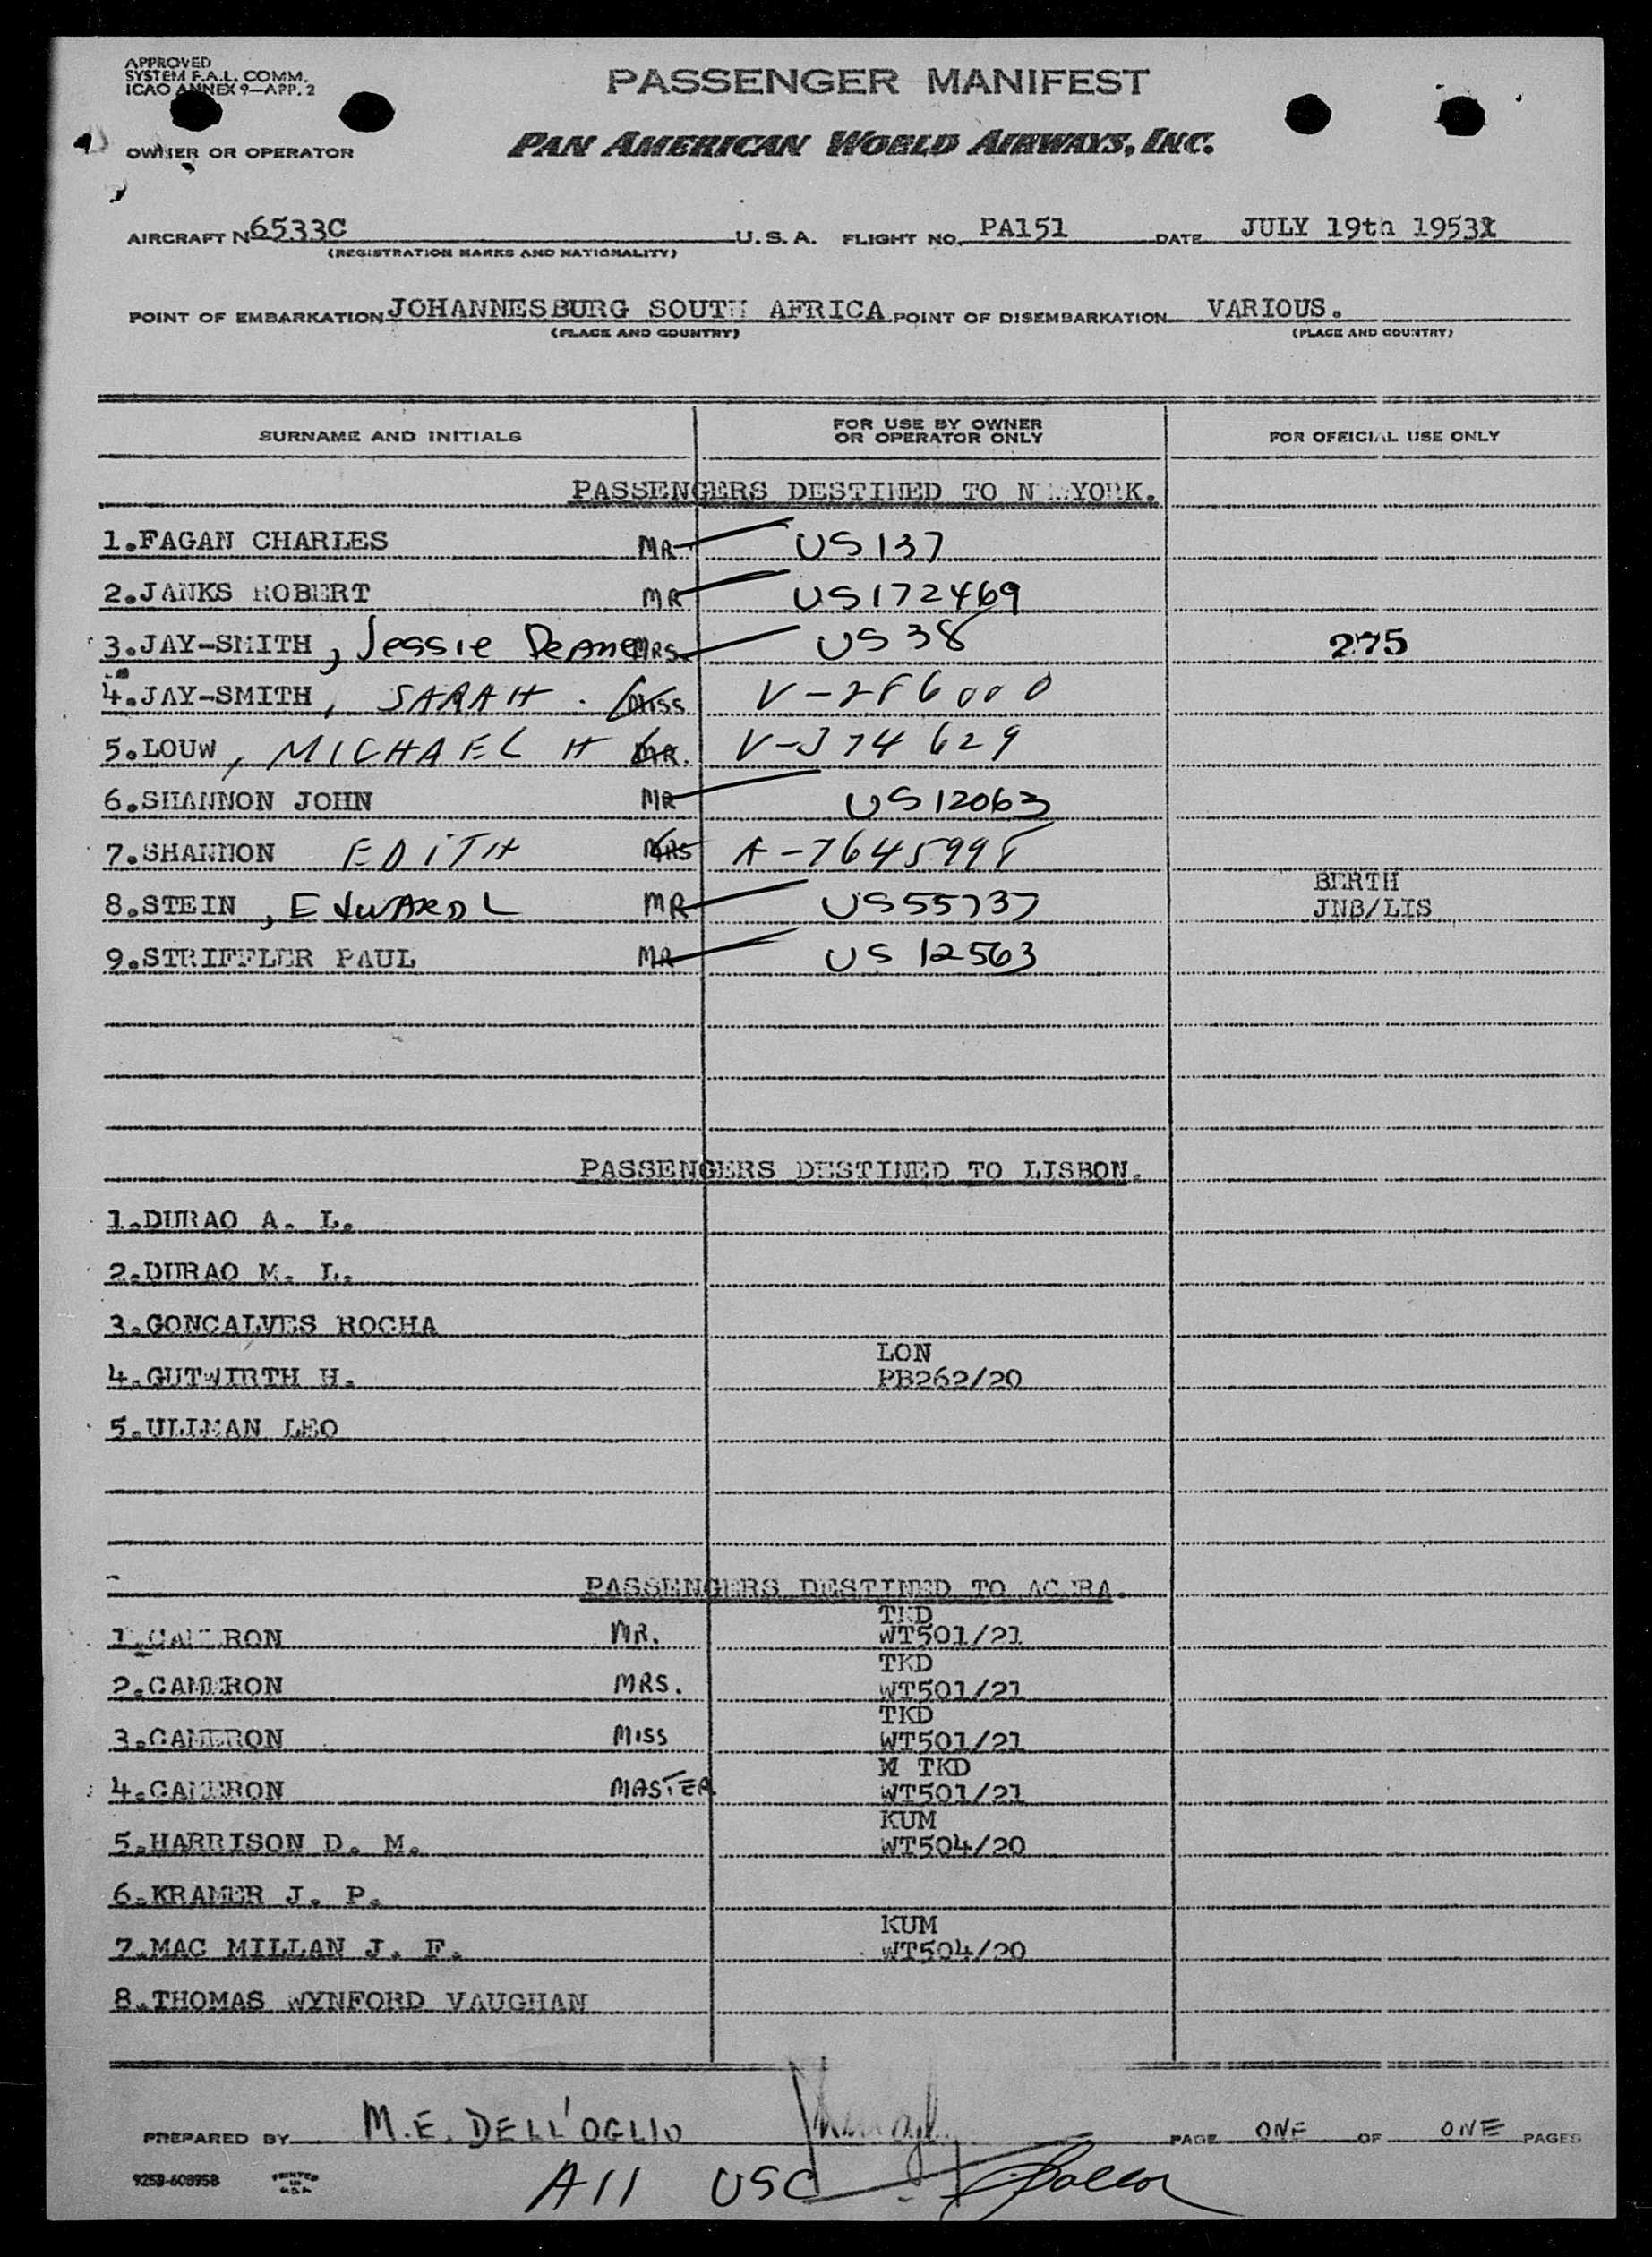 APPROVED
SYSTEM F.A.L. COMM.
ICAO ANNEX 9—APP. 2
PASSENGER MANIFEST
OWNER OR OPERATOR
PAN AMERICAN WORLD AIRWAYS, INC.
AIRCRAFT N6533C U.S.A. FLIGHT NO. PA151 DATE JULY 19th 1953
(REGISTRATION MARKS AND NATIONALITY)
POINT OF EMBARKATION JOHANNESBURG SOUTH AFRICA POINT OF DISEMBARKATION VARIOUS.
(PLACE AND COUNTRY) (PLACE AND COUNTRY)
SURNAME AND INITIALS FOR USE BY OWNER OR OPERATOR ONLY FOR OFFICIAL USE ONLY
PASSENGERS DESTINED TO N YORK.
1.FAGAN CHARLES MR US137
2.JANKS ROBERT MR US172469
3.JAY-SMITH, Jessie Deane MRS US 38 275
4.JAY-SMITH, SARAH. MISS V-286000
5.LOUW, MICHAEL H MR. V-374629
6.SHANNON JOHN MR US12063
7.SHANNON EDITH MRS A-7645998
8.STEIN, EDWARD L MR US55737 BERTH JNB/LIS
9.STRIFFLER PAUL MR US 12563
PASSENGERS DESTINED TO LISBON.
1.DURAO A. L.
2.DURAO M. L.
3.GONCALVES ROCHA
4.GUTWIRTH H. LON PB262/20
5.ULLMAN LEO
PASSENGERS DESTINED TO ACCRA.
1.CAMERON MR. TKD WT501/21
2.CAMERON MRS. TKD WT501/21
3.CAMERON MISS TKD WT501/21
4.CAMERON MASTER TKD WT501/21
5.HARRISON D. M. KUM WT504/20
6.KRAMER J. P.
7.MAC MILLAN J. F. KUM WT504/20
8.THOMAS WYNFORD VAUGHAN
PREPARED BY M.E. DELL'OGLIO PAGE ONE OF ONE PAGES
9253-608958 PRINTED IN U.S.A. All USC